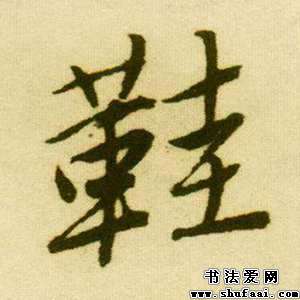 鞋
书法爱网
www.shufaai.com